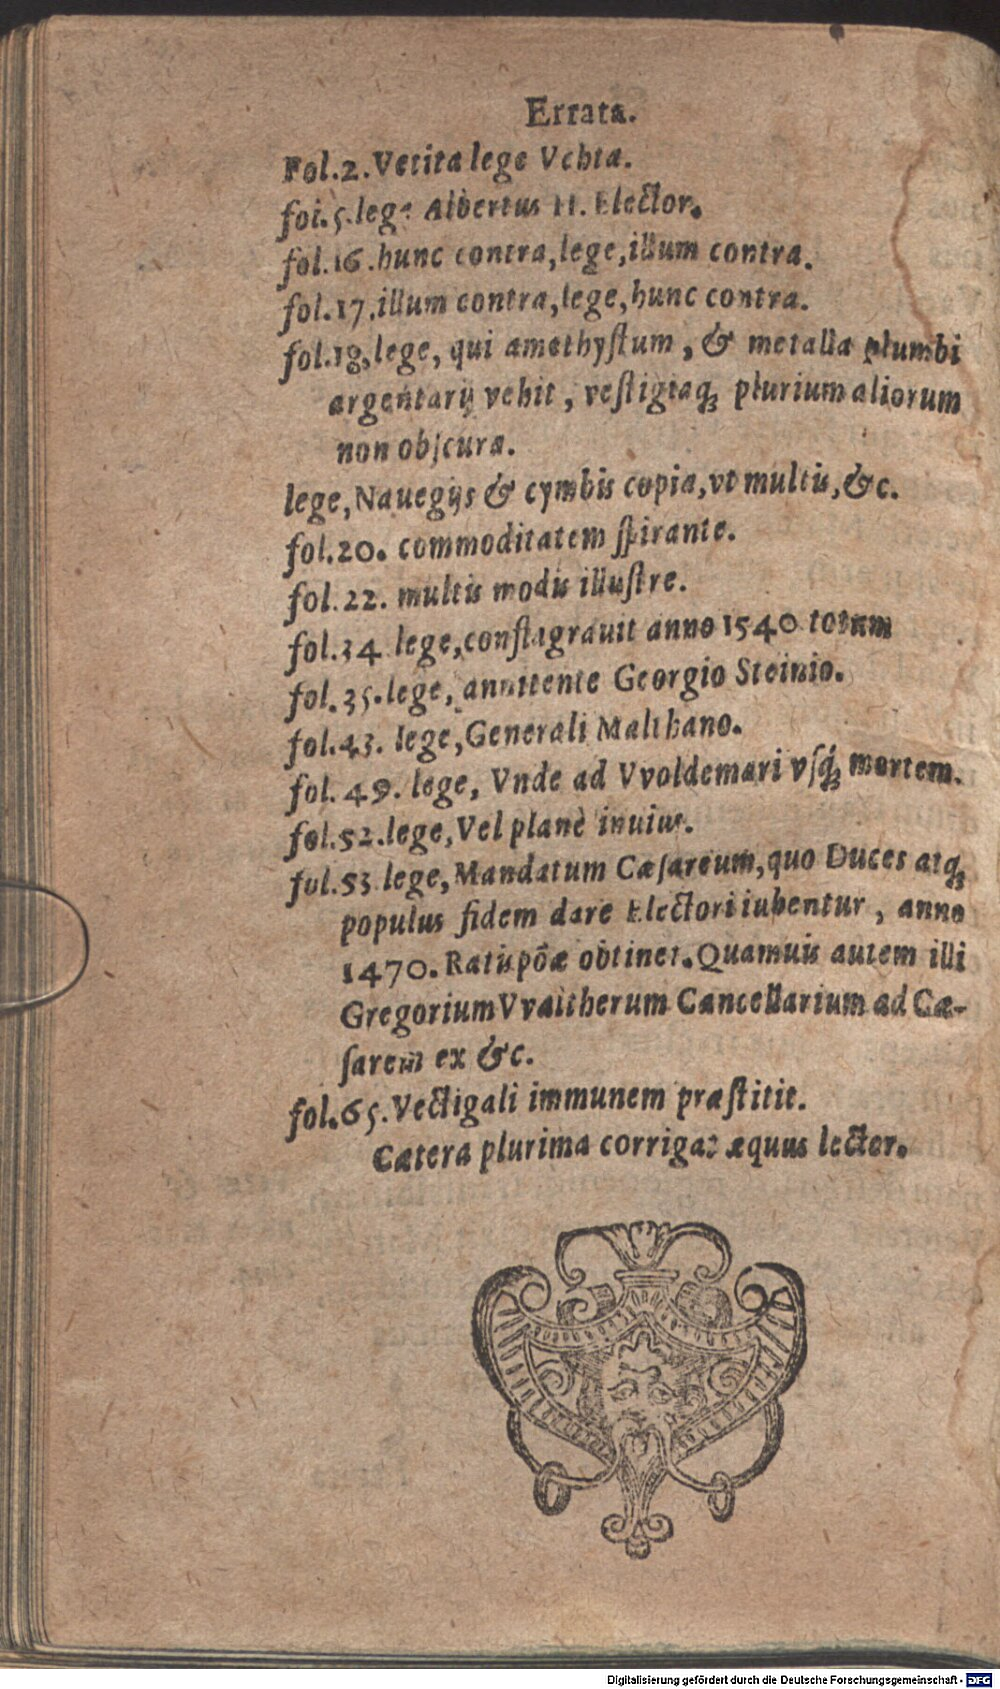 Errata.
Fol.2. Vetita lege Vchta.
fol.5. lege Albertus II. Elector.
fol.16. hunc contra, lege, illum contra.
fol.17. illum contra, lege, hunc contra.
fol.18, lege, qui amethyſtum, & metalla plumbi
argentarij vehit, veſtigiaqꝫ plurium aliorum
non obſcura.
lege, Nauegijs & cymbis copia, vt multis, &c.
fol.20. commoditatem ſpirante.
fol.22. multis modis illuſtre.
fol.34 lege, conflagrauit anno 1540 totum
fol.35. lege, annitente Georgio Steinio.
fol.43. lege, Generali Malthano.
fol.49. lege, Vnde ad Vvoldemari vſqꝫ mortem.
fol.52. lege, Vel planè inuius.
fol.53 lege, Mandatum Cæſareum, quo Duces atqꝫ
populus fidem dare Electori iubentur, anno
1470. Ratispõæ obtinet. Quamuis autem illi
Gregorium Vvaltherum Cancellarium ad Cæ-
ſarem ex &c.
fol.65. Vectigali immunem præſtitit.
Cætera plurima corrigat æquus lector.
Digitalisierung gefördert durch die Deutsche Forschungsgemeinschaft - DFG